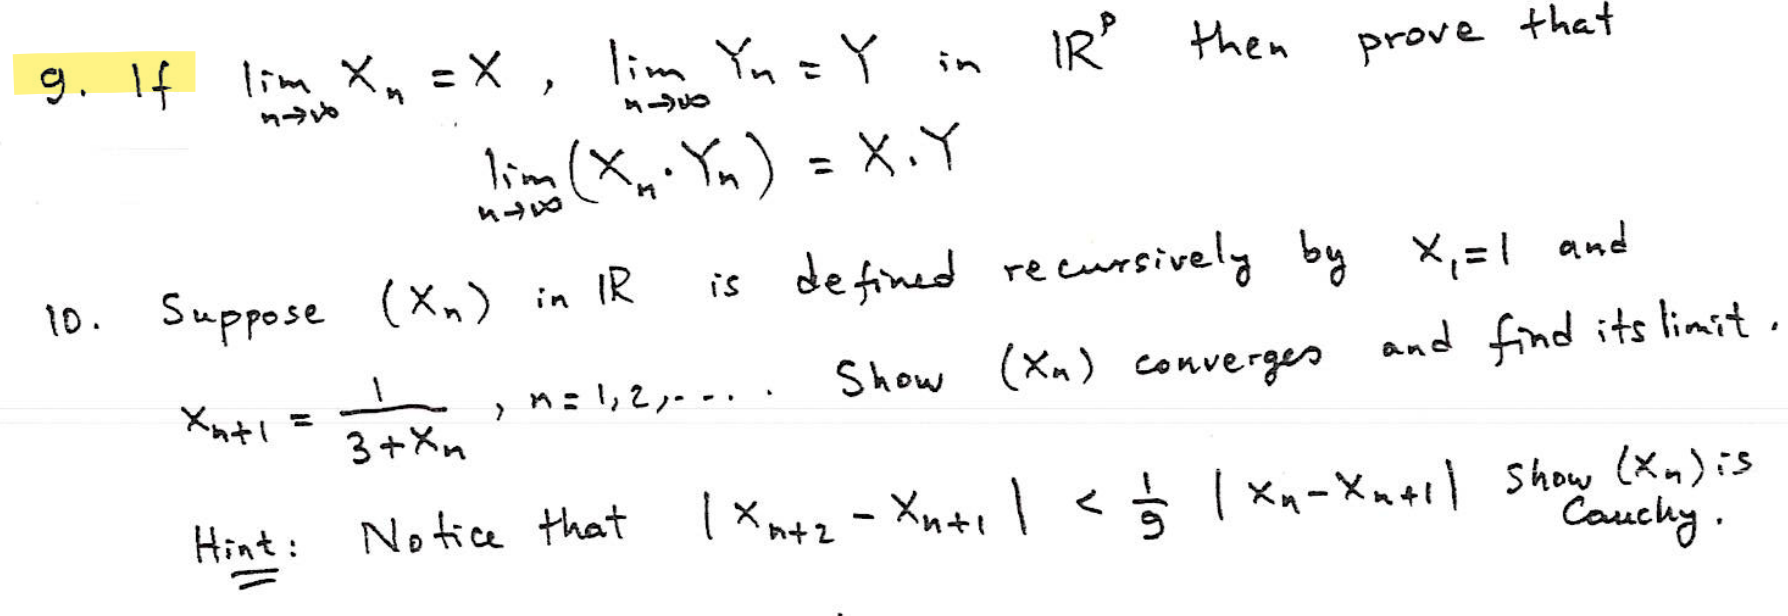 9. If lim n→∞ Xn = X , lim n→∞ Yn = Y in IR^p then prove that
lim n→∞ (Xn · Yn) = X · Y
10. Suppose (Xn) in IR is defined recursively by X1=1 and
Xn+1 = 1/(3+Xn) , n=1,2,.... Show (Xn) converges and find its limit.
Hint: Notice that |Xn+2 - Xn+1| < 1/9 |Xn - Xn+1| Show (Xn) is
Cauchy.